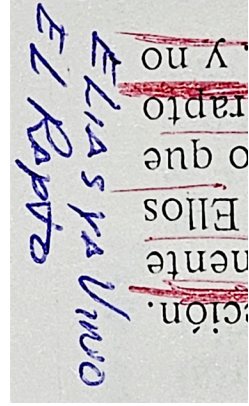 ción.
nente
Ellos
o que
rapto
y no
ELIAS YA Vino
EL Rapto